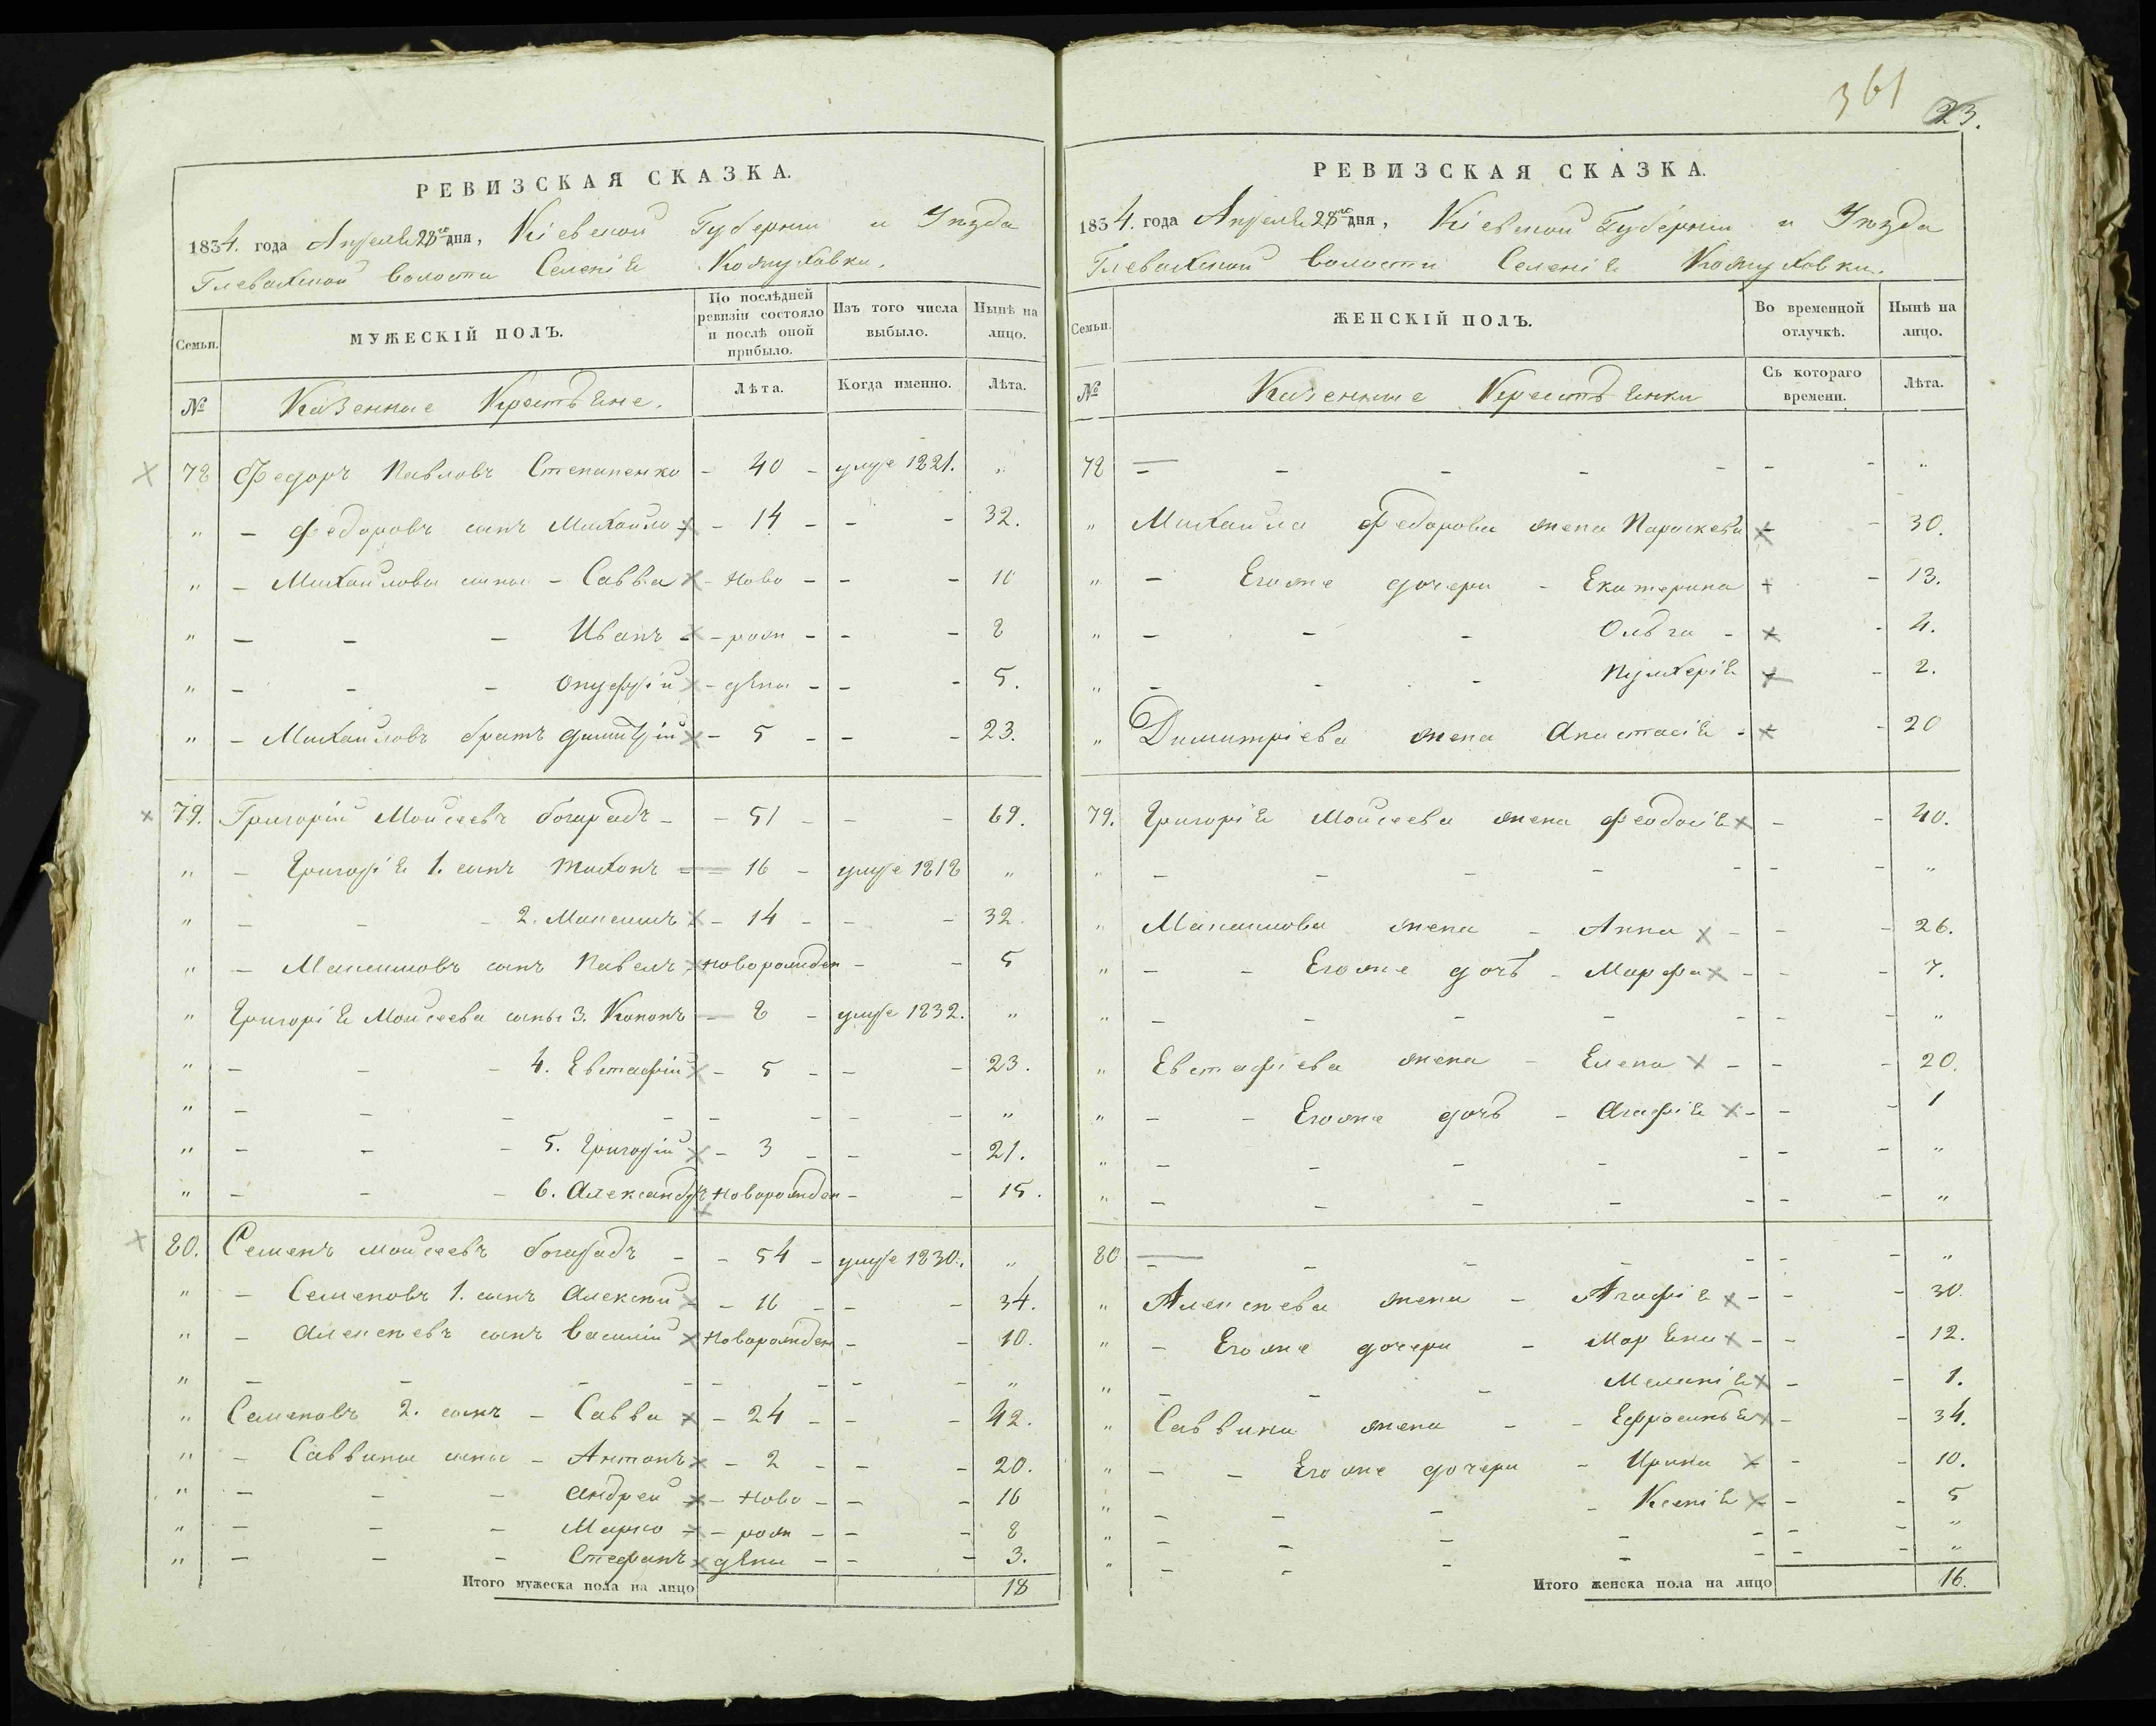 361
23.
РЕВИЗСКАЯ СКАЗКА.
1834. года Апреля 28го дня, Кіевской Губерніи и Уѣзда
Глевахской волости Селенія Кожуховки.
Семьи.
МУЖЕСКІЙ ПОЛЪ.
По послѣдней ревизіи состояло и послѣ оной прибыло.
Изъ того числа выбыло.
Нынѣ на лицо.
№
Казенные Крестьяне.
Лѣта.
Когда именно.
Лѣта.
78 Федоръ Павловъ Степаненко - 40 - умре 1821. "
" - Федоровъ сынъ Михайло - 14 - - - 32.
" - Михайловы сыны - Савва - Ново - - - 10
" - - - Иванъ - рож - - - 8
" - - - Онуфрій - дены - - - 5.
" - Михайловъ братъ Димитрій - 5 - - - 23.
79. Григорій Моисеевъ Богирадъ - - 51 - - - 69.
" - Григорія 1. сынъ Тихонъ - 16 - умре 1818 "
" - - - 2. Максимъ - 14 - - - 32.
" - Максимовъ сынъ Павелъ новорожден - - 5
" Григорія Моисеева сыны 3. Кононъ - 8 - умре 1832. "
" - - - 4. Евстафій - 5 - - - 23.
" - - - - - - - - "
" - - - 5. Григорій - 3 - - - 21.
" - - - 6. Александръ новорожден - - 15.
80. Семенъ Моисеевъ Богирадъ - - 54 - умре 1830. "
" - Семеновъ 1. сынъ Алексѣй - 16 - - - 34.
" - Алексѣевъ сынъ Василій новорожден - - 10.
" - - - - - - - - "
" Семеновъ 2. сынъ - Савва - 24 - - - 42.
" - Саввины сыны - Антонъ - 2 - - - 20.
" - - - Андрей - Ново - - - 16
" - - - Марко - рож - - - 8
" - - - Стефанъ дены - - - 3.
Итого мужеска пола на лицо 18
РЕВИЗСКАЯ СКАЗКА.
1834. года Апреля 28го дня, Кіевской Губерніи и Уѣзда
Глевахской волости Селенія Кожуховки.
Семьи.
ЖЕНСКІЙ ПОЛЪ.
Во временной отлучкѣ.
Нынѣ на лицо.
№
Казенные Крестьянки
Съ котораго времени.
Лѣта.
78 - - - - - - "
" Михайла Федорова жена Параскева - 30.
" - Егоже дочери - Екатерина - 13.
" - - - Ольга - - 4.
" - - - Пулхерія - 2.
" Димитріева жена Анастасія - - 20
79. Григорія Моисеева жена Феодосія - - 40.
" - - - - - - - "
" Максимова жена - Анна - - - 26.
" - - Егоже дочь - Марфа - - - 7.
" - - - - - - - "
" Евстафіева жена - Елена - - - 20.
" - - Егоже дочь - Агафія - - - 1
" - - - - - - - "
" - - - - - - - "
80 - - - - - - - "
" Алексѣева жена - Агафія - - - 30.
" - Егоже дочери - Марьяна - - - 12.
" - - - Меланія - - 1.
" Саввина жена - - Ефросинья - - 34.
" - - Егоже дочери - Ирина - - 10.
" - - - - Ксенія - - 5
" - - - - - - - "
" - - - - - - - "
Итого женска пола на лицо 16.